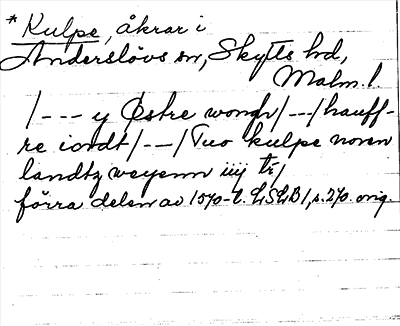 * Kulpe, åkrar i
Anderslövs sn, Skytts hd,
Malm. l.
/--- y Østre wongh/---/hauff-
re iordt/---/Tuo kulpe noren
landtz weyenn iiij tr/
förra delen av 1570-t. LSLB1, s. 270. orig.